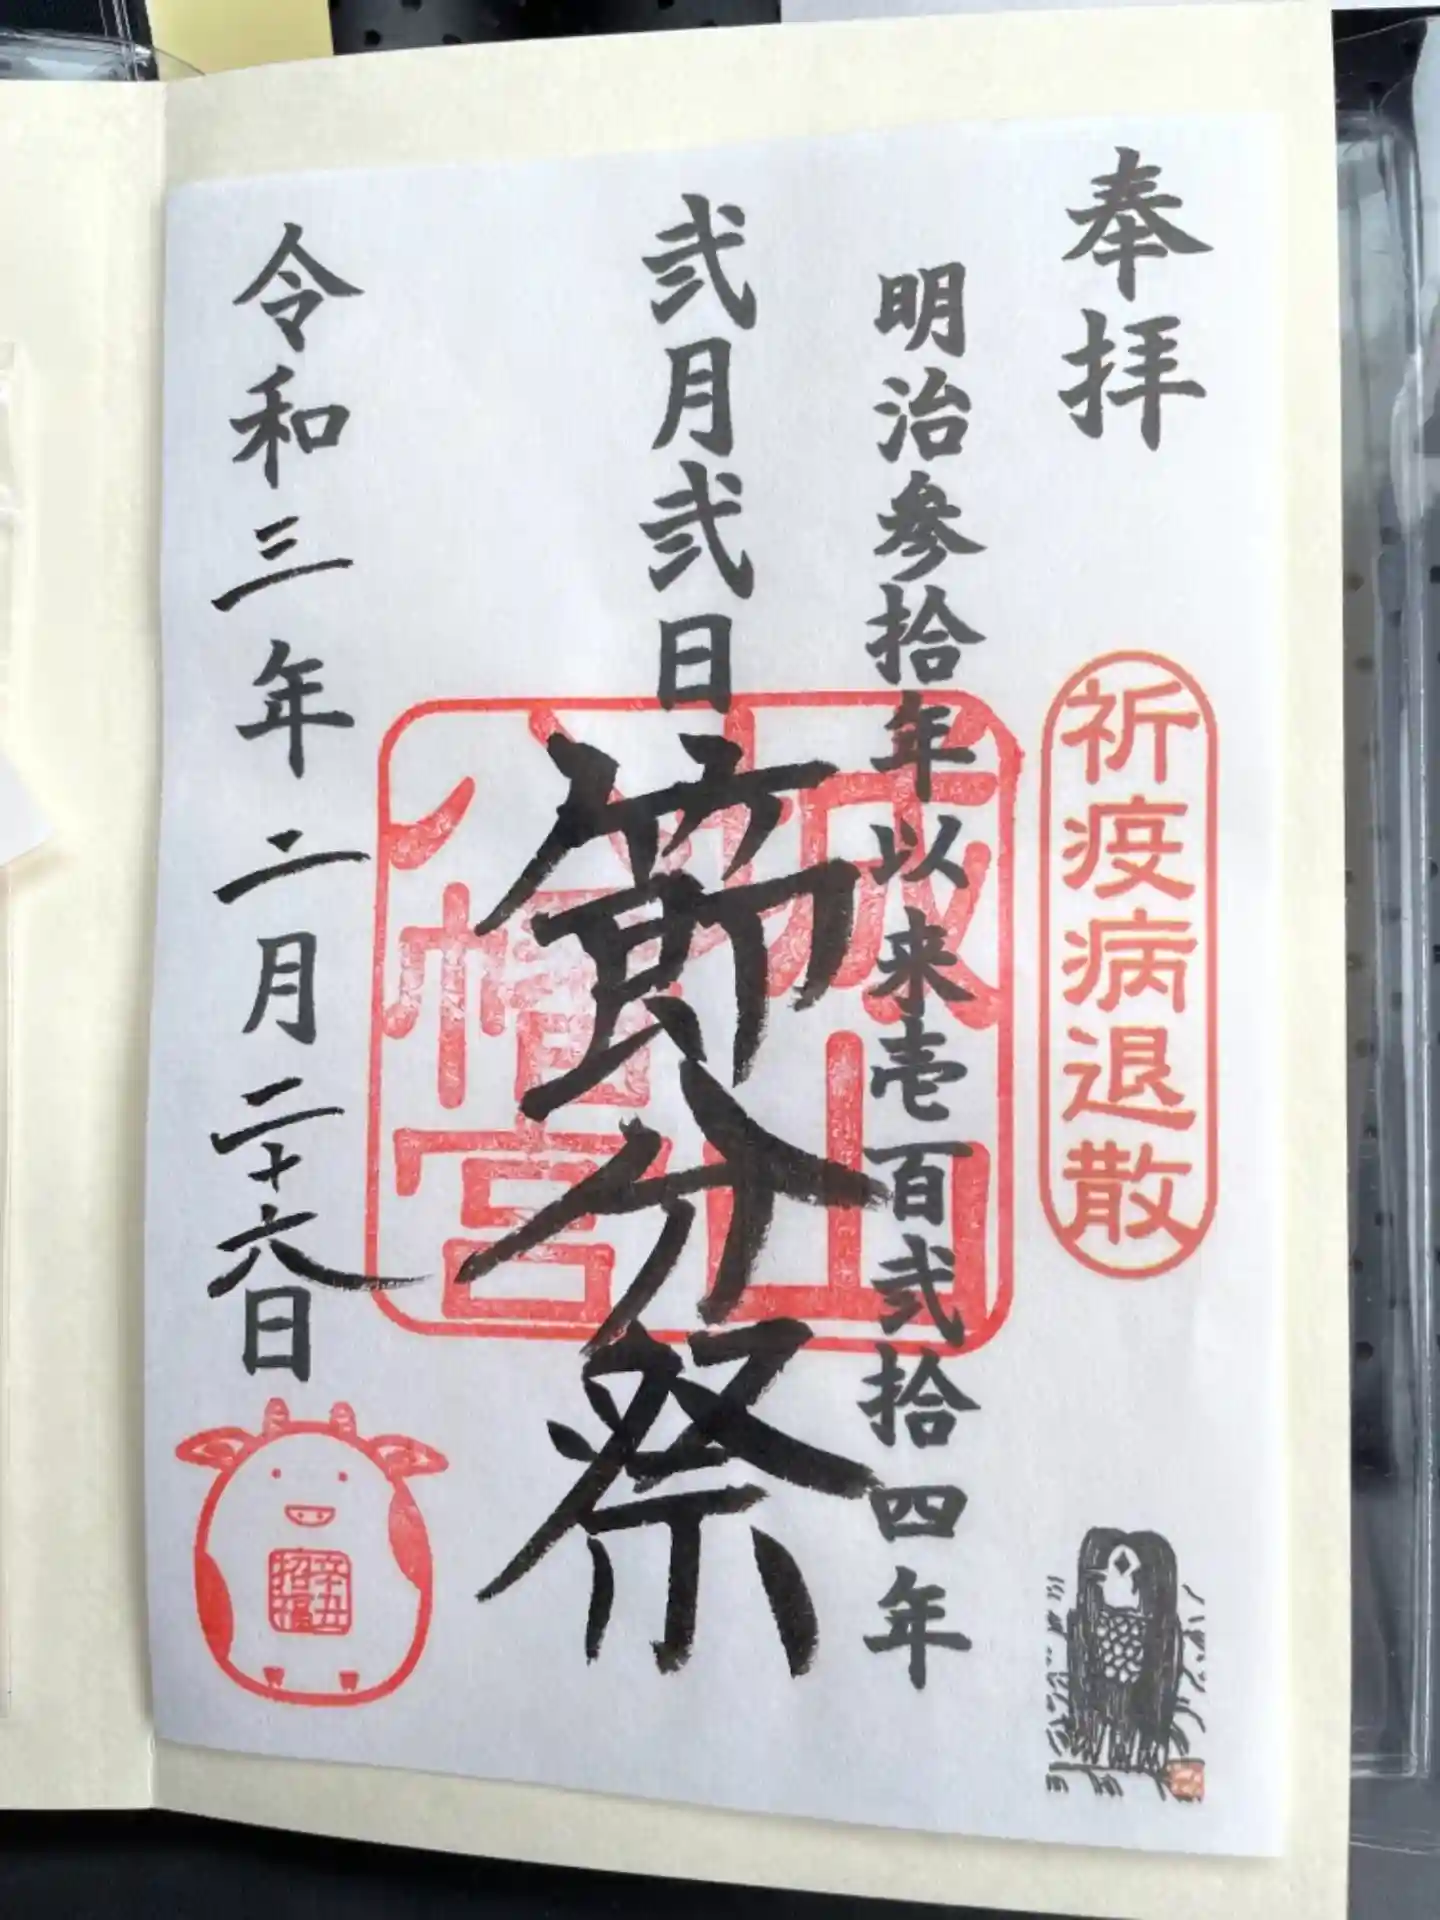 奉拝
祈疫病退散
明治参拾年以来壱百弐拾四年
弐月弐日
節分祭
城山
八幡宮
令和三年二月二十六日
辛丑
招福